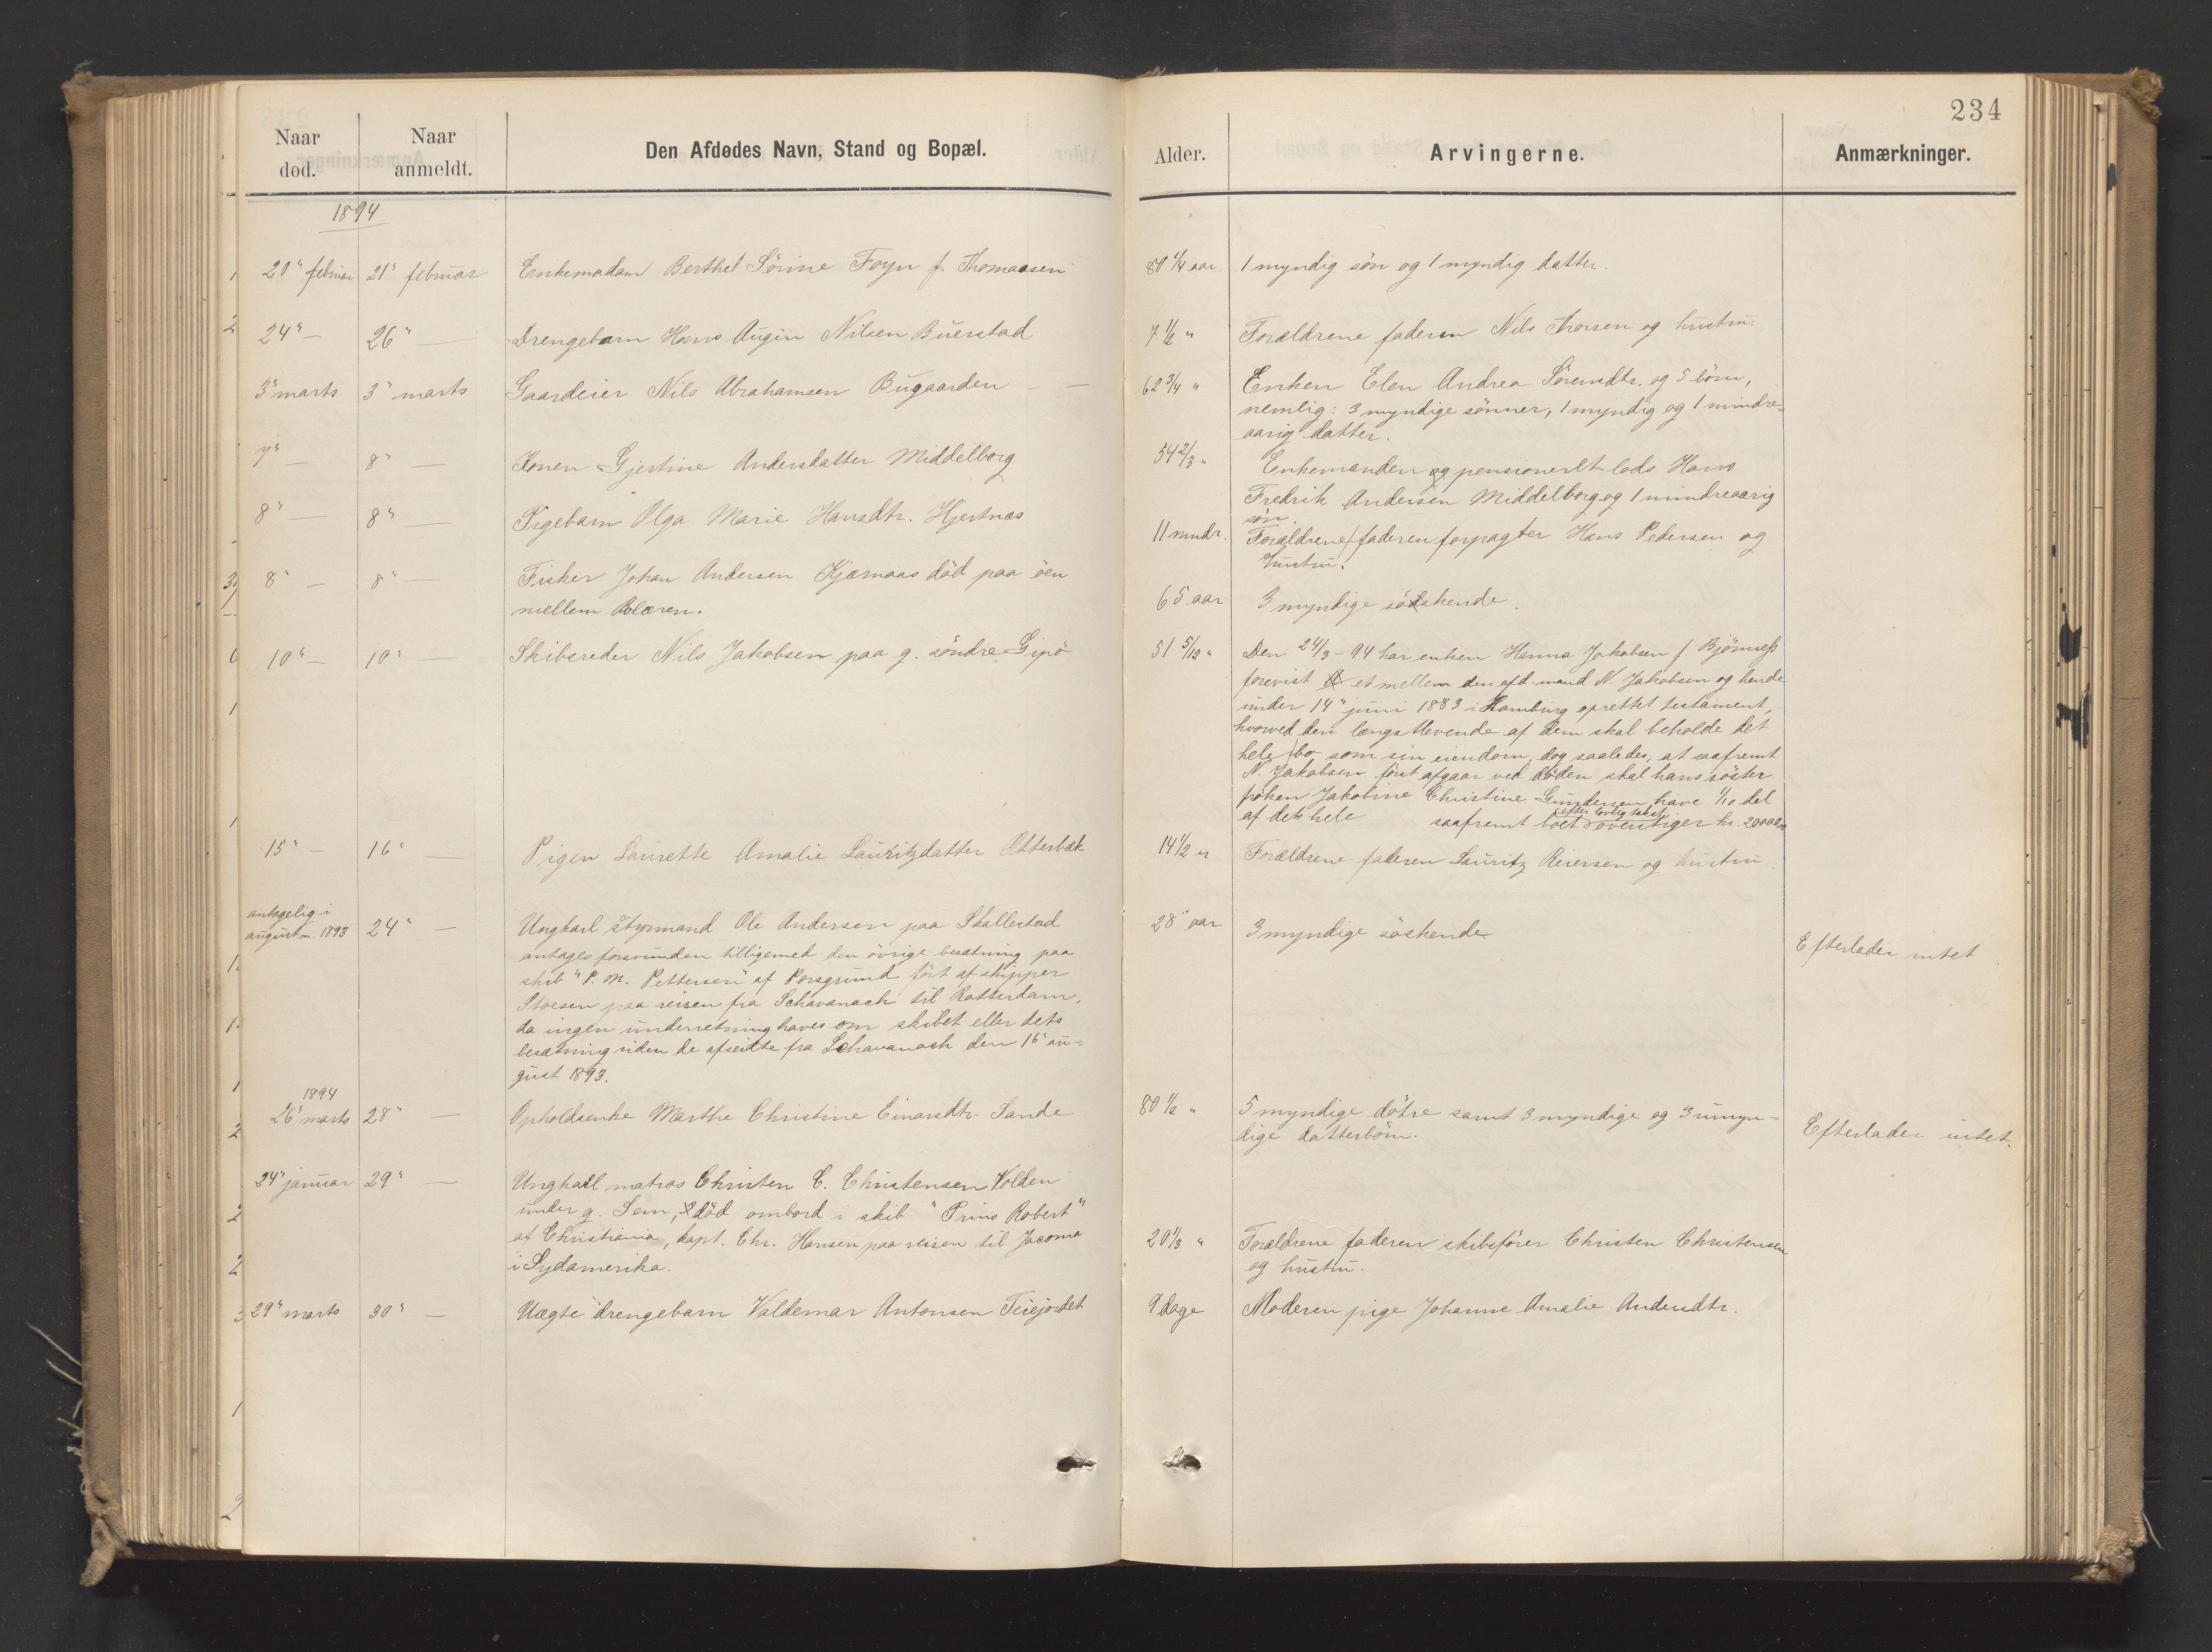 234
Naar død.
Naar anmeldt.
Den Afdødes Navn, Stand og Bopæl.
Alder.
Arvingerne.
Anmærkninger.
1894
20" februar 21" februar Enkemadam Berthe Sörine Foyn f. Thomassen 80 1/4 aar. 1 myndig sön og 1 myndig datter.
24" — 26" — Drengebarn Hans Augin Nilsen Buerstad 7 1/2 " Forældrene faderen Nils Thorsen og hustru.
3" marts 3" marts Gaardeier Nils Abrahamsen Bugaarden — — 62 3/4 " Enken Elen Andrea Sörensdtr. og 5 börn,
nemlig: 3 myndige sönner, 1 myndig og 1 mindre=
aarig datter.
7" — 8" — Konen Gjertine Andersdatter Middelborg 54 2/3 " Enkemanden pensioneret lods Hans
Fredrik Andersen Middelborg og 1 mindreaarig
sön.
8" — 8" — Pigebarn Olga Marie Hansdtr. Hjertnæs 11 mndr. Forældrene faderen forpagter Hans Pedersen og
hustru.
8" — 8" — Fisker Johan Andersen Kjærnaas död paa öen
mellem Bolæren.
65 aar 3 myndige söskende.
10" — 10" — Skibsreder Nils Jakobsen paa g. söndre Gipö 51 5/12 " Den 24/3 - 94 har enken Hanna Jakobsen f. Björness
forevist et mellem den afd. mand N. Jakobsen og hende
under 14" juni 1883 i Hamburg oprettet testament,
hvorved den længstlevende af dem skal beholde det
hele bo som sin eiendom, dog saaledes, at saafremt
N. Jakobsen först afgaar ved döden skal hans söster
fröken Jakobine Christine Gundersen have 1/10 del
af det hele saafremt boet efter lovlig takst overstiger kr. 20000
15" — 16" — Pigen Laurette Amalie Lauritzdatter Otterbæk 14 1/2 " Forældrene faderen Lauritz Reiersen og hustru.
antagelig i
august m. 1893 24" — Ungkarl styrmand Ole Andersen paa Skallestad 28" aar 3 myndige söskende. Efterlader intet
antages forsvunden tilligemed den övrige besætning paa
skib "P. M. Pettersen" af Porsgrund fört af skipper
Stoesen paa reisen fra Schavanach til Rotterdam,
da ingen underretning haves om skibet eller dets
besætning siden de afseilte fra Schavanach den 16" au=
gust 1893.
1894
26" marts 28" — Opholdsenke Marthe Christine Einarsdtr. Sande 80 1/2 " 5 myndige dötre samt 3 myndige og 3 umyn=
dige datterbörn. Efterlader intet.
24" januar 29" — Ungkarl matros Christen C. Christensen Volden
under g. Sem, död ombord i skib "Prins Robert"
af Christiania, kapt. Chr. Hansen paa reisen til Jacoma
i Sydamerika.
20 1/3 " Forældrene faderen skibsförer Christen Christensen
og hustru.
29" marts 30" — Uægte drengebarn Valdemar Antonsen Teiejordet 9 dage Moderen pige Johanne Amalie Andersdtr.